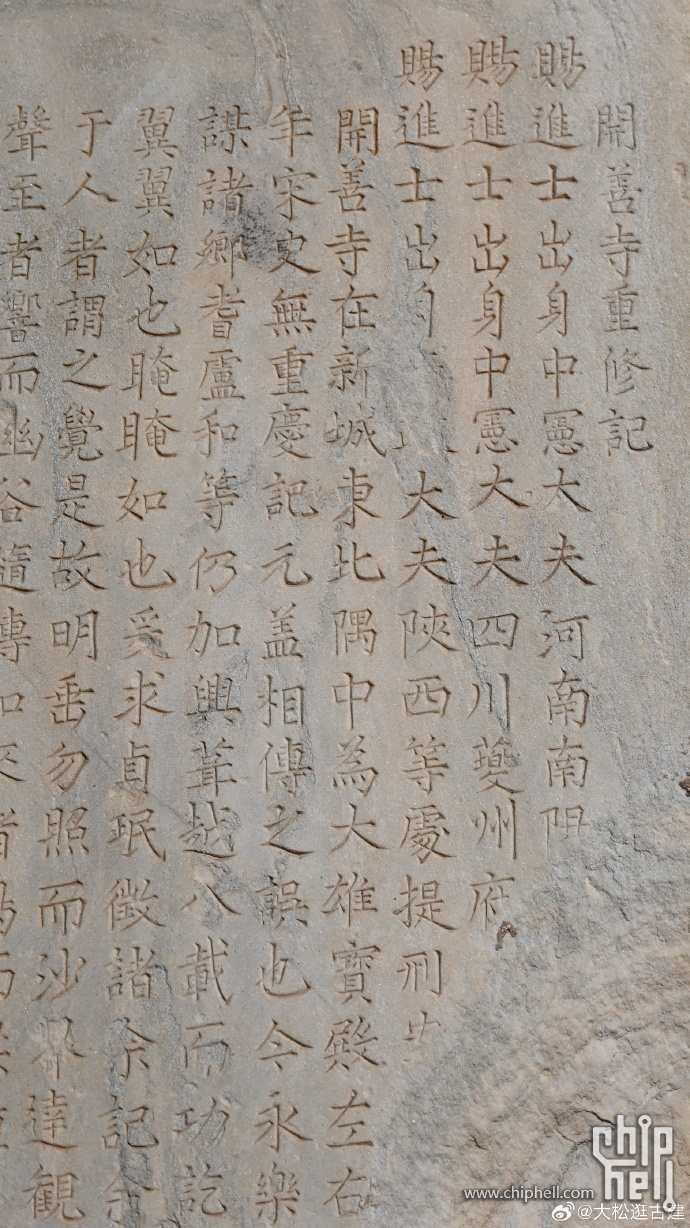 開善寺重修記
賜進士出身中憲大夫河南南陽
賜進士出身中憲大夫四川夔州府
賜進士出身大夫陝西等處提刑
開善寺在新城東北隅中為大雄寶殿左右
年宋史無重慶記元盖相傳之誤也今永樂
謀諸鄉耆盧和等仍加興葺越八載而功訖
翼翼如也晻晻如也爰求貞珉徵諸余記余
于人者謂之覺是故明垂勿照而沙界達觀
聲至者響而幽谷隨傳如來者
www.chiphell.com
chip hell
@大松逛古建